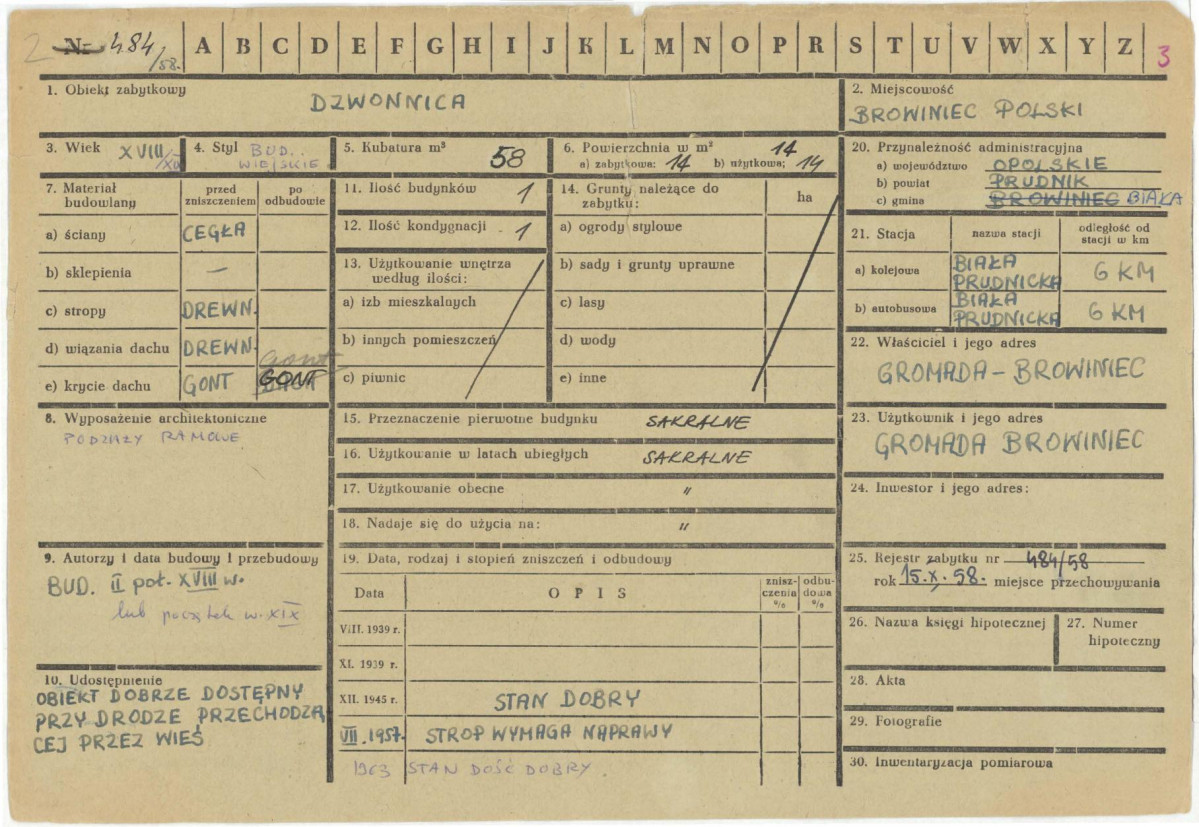 2 Nr 484/58. A B C D E F G H I J K L M N O P R S T U V W X Y Z 3
1. Obiekt zabytkowy
DZWONNICA
2. Miejscowość
BROWINIEC POLSKI
3. Wiek XVIII/XIX
4. Styl BUD. WIEJSKIE
5. Kubatura m³ 58
6. Powierzchnia w m² 14
a) zabytkowa: 14 b) użytkowa; 14
7. Materiał budowlany
przed zniszczeniem
po odbudowie
a) ściany CEGŁA
b) sklepienia —
c) stropy DREWN.
d) wiązania dachu DREWN.
gont
e) krycie dachu GONT GONT
8. Wyposażenie architektoniczne
PODZIAŁY RAMOWE
9. Autorzy i data budowy i przebudowy
BUD. II poł. XVIII w.
lub początek w. XIX
10. Udostępnienie
OBIEKT DOBRZE DOSTĘPNY
PRZY DRODZE PRZECHODZĄ
CEJ PRZEZ WIEŚ
11. Ilość budynków 1
12. Ilość kondygnacji 1
13. Użytkowanie wnętrza
według ilości:
a) izb mieszkalnych
b) innych pomieszczeń
c) piwnic
14. Grunty należące do
zabytku: ha
a) ogrody stylowe
b) sady i grunty uprawne
c) lasy
d) wody
e) inne
15. Przeznaczenie pierwotne budynku SAKRALNE
16. Użytkowanie w latach ubiegłych SAKRALNE
17. Użytkowanie obecne "
18. Nadaje się do użycia na: "
19. Data, rodzaj i stopień zniszczeń i odbudowy
Data OPIS znisz-czenia % odbu-dowa %
VIII. 1939 r.
XI. 1939 r.
XII. 1945 r. STAN DOBRY
VII. 1957. STROP WYMAGA NAPRAWY
1963 STAN DOŚĆ DOBRY.
20. Przynależność administracyjna
a) województwo OPOLSKIE
b) powiat PRUDNIK
c) gmina BROWINIEC BIAŁA
21. Stacja
nazwa stacji
odległość od stacji w km
a) kolejowa BIAŁA PRUDNICKA 6 KM
b) autobusowa BIAŁA PRUDNICKA 6 KM
22. Właściciel i jego adres
GROMADA – BROWINIEC
23. Użytkownik i jego adres
GROMADA BROWINIEC
24. Inwestor i jego adres:
25. Rejestr zabytku nr 484/58
rok 15.X.58. miejsce przechowywania
26. Nazwa księgi hipotecznej
27. Numer hipoteczny
28. Akta
29. Fotografie
30. Inwentaryzacja pomiarowa